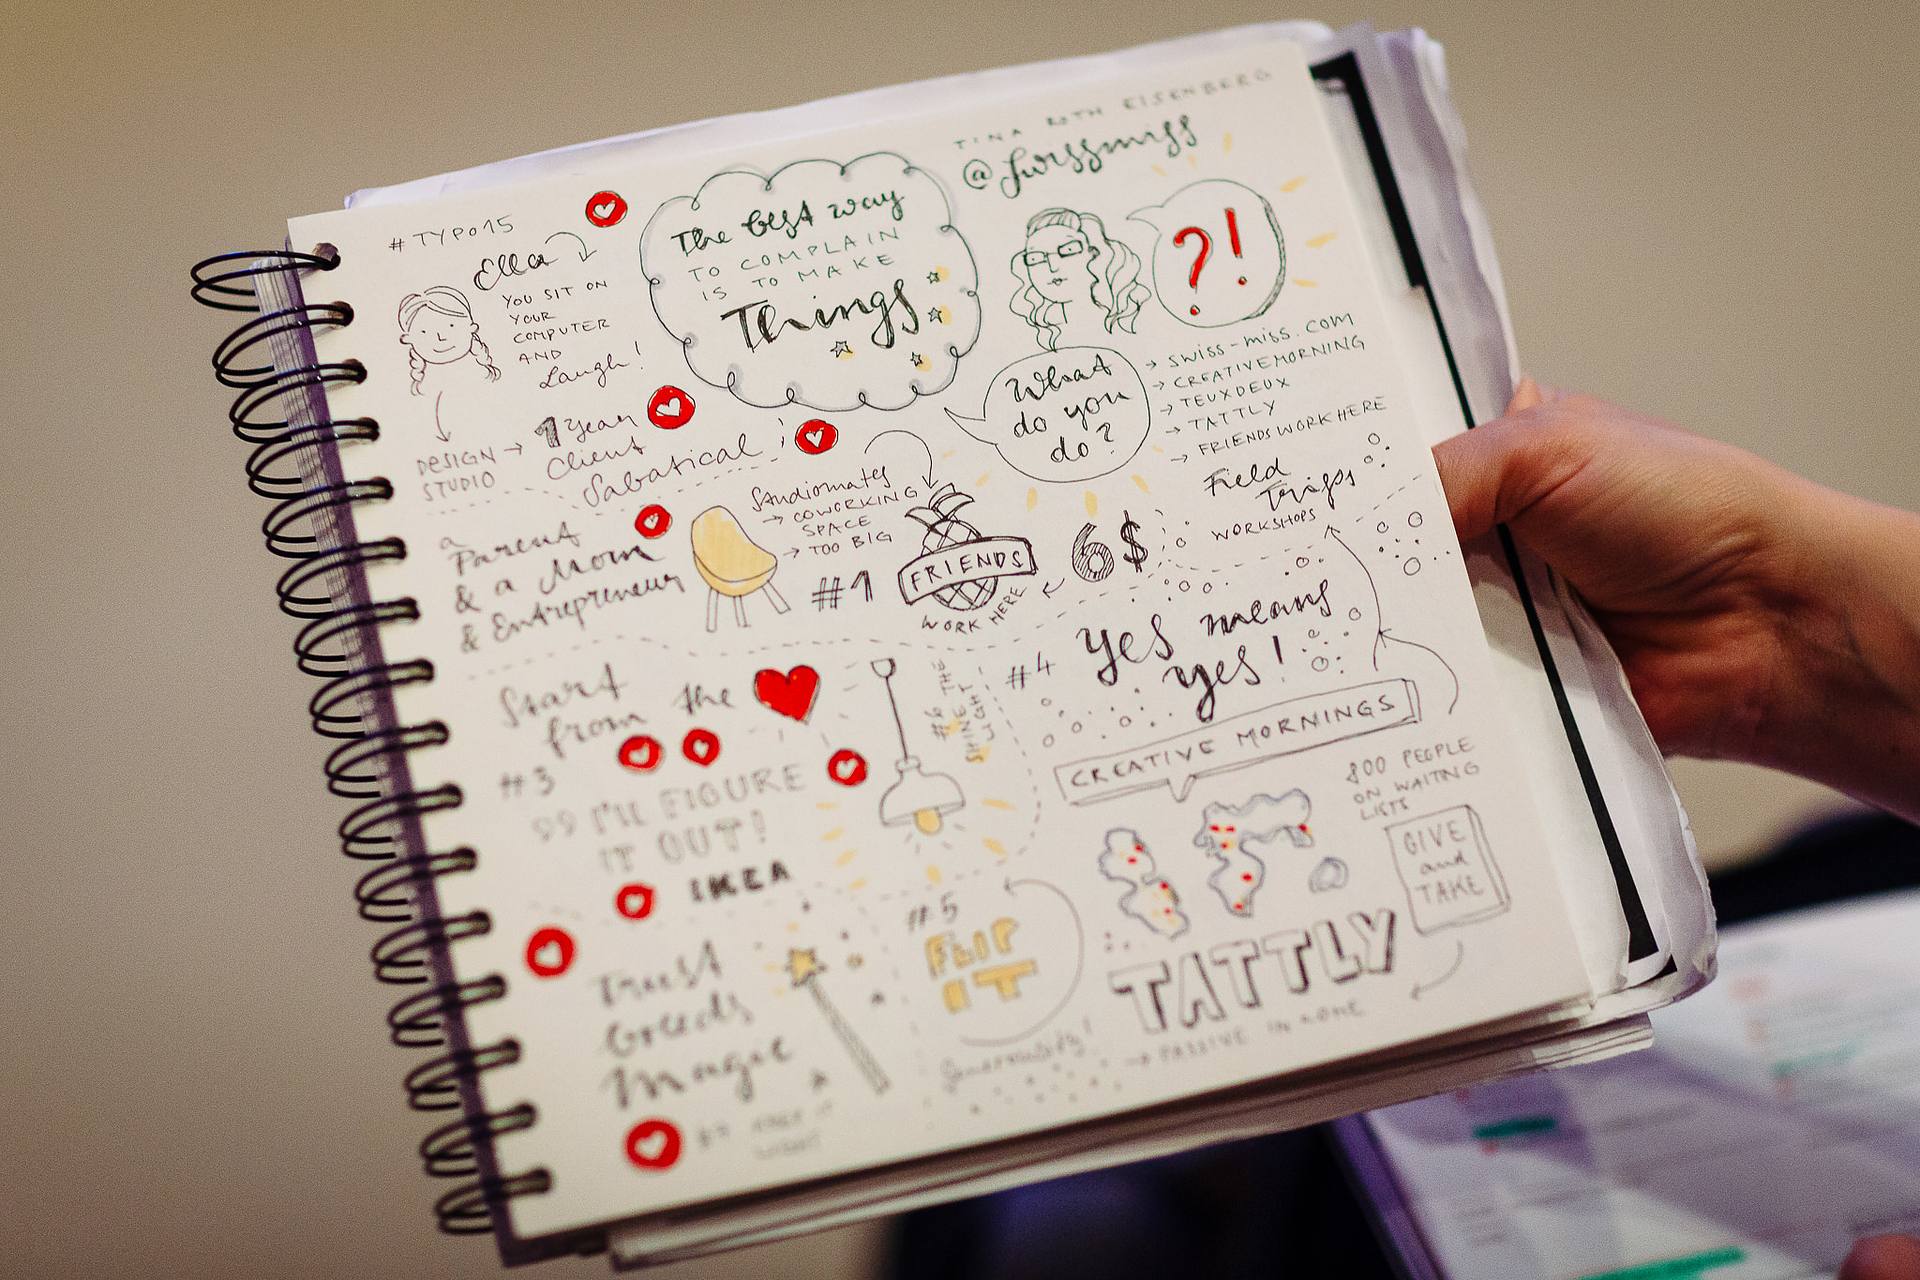 #TYPO15
Ella
YOU SIT ON
YOUR
COMPUTER
AND
Laugh!
DESIGN →
STUDIO
1 Year
Client
Sabatical
The best way
TO COMPLAIN
IS TO MAKE
Things
TINA ROTH EISENBERG
@Swissmiss
?!
What
do you
do?
→ SWISS-MISS.COM
→ CREATIVEMORNING
→ TEUXDEUX
→ TATTLY
→ FRIENDS WORK HERE
Field
Trips
WORKSHOPS
a
Parent
& a Mom
& Entrepreneur
Studiomates
→ COWORKING
SPACE
→ TOO BIG
#1
FRIENDS
WORK HERE
6$
Start
from the
#3
I'LL FIGURE
IT OUT!
IKEA
#6 THE
SHINE
LIGHT
#4
Yes means
yes!
CREATIVE MORNINGS
800 PEOPLE
ON WAITNG
LISTS
GIVE
and
TAKE
Trust
breeds
Magic
#7
#5
FLIP
IT
Generosity!
TATTLY
→ PASSIVE INCOME